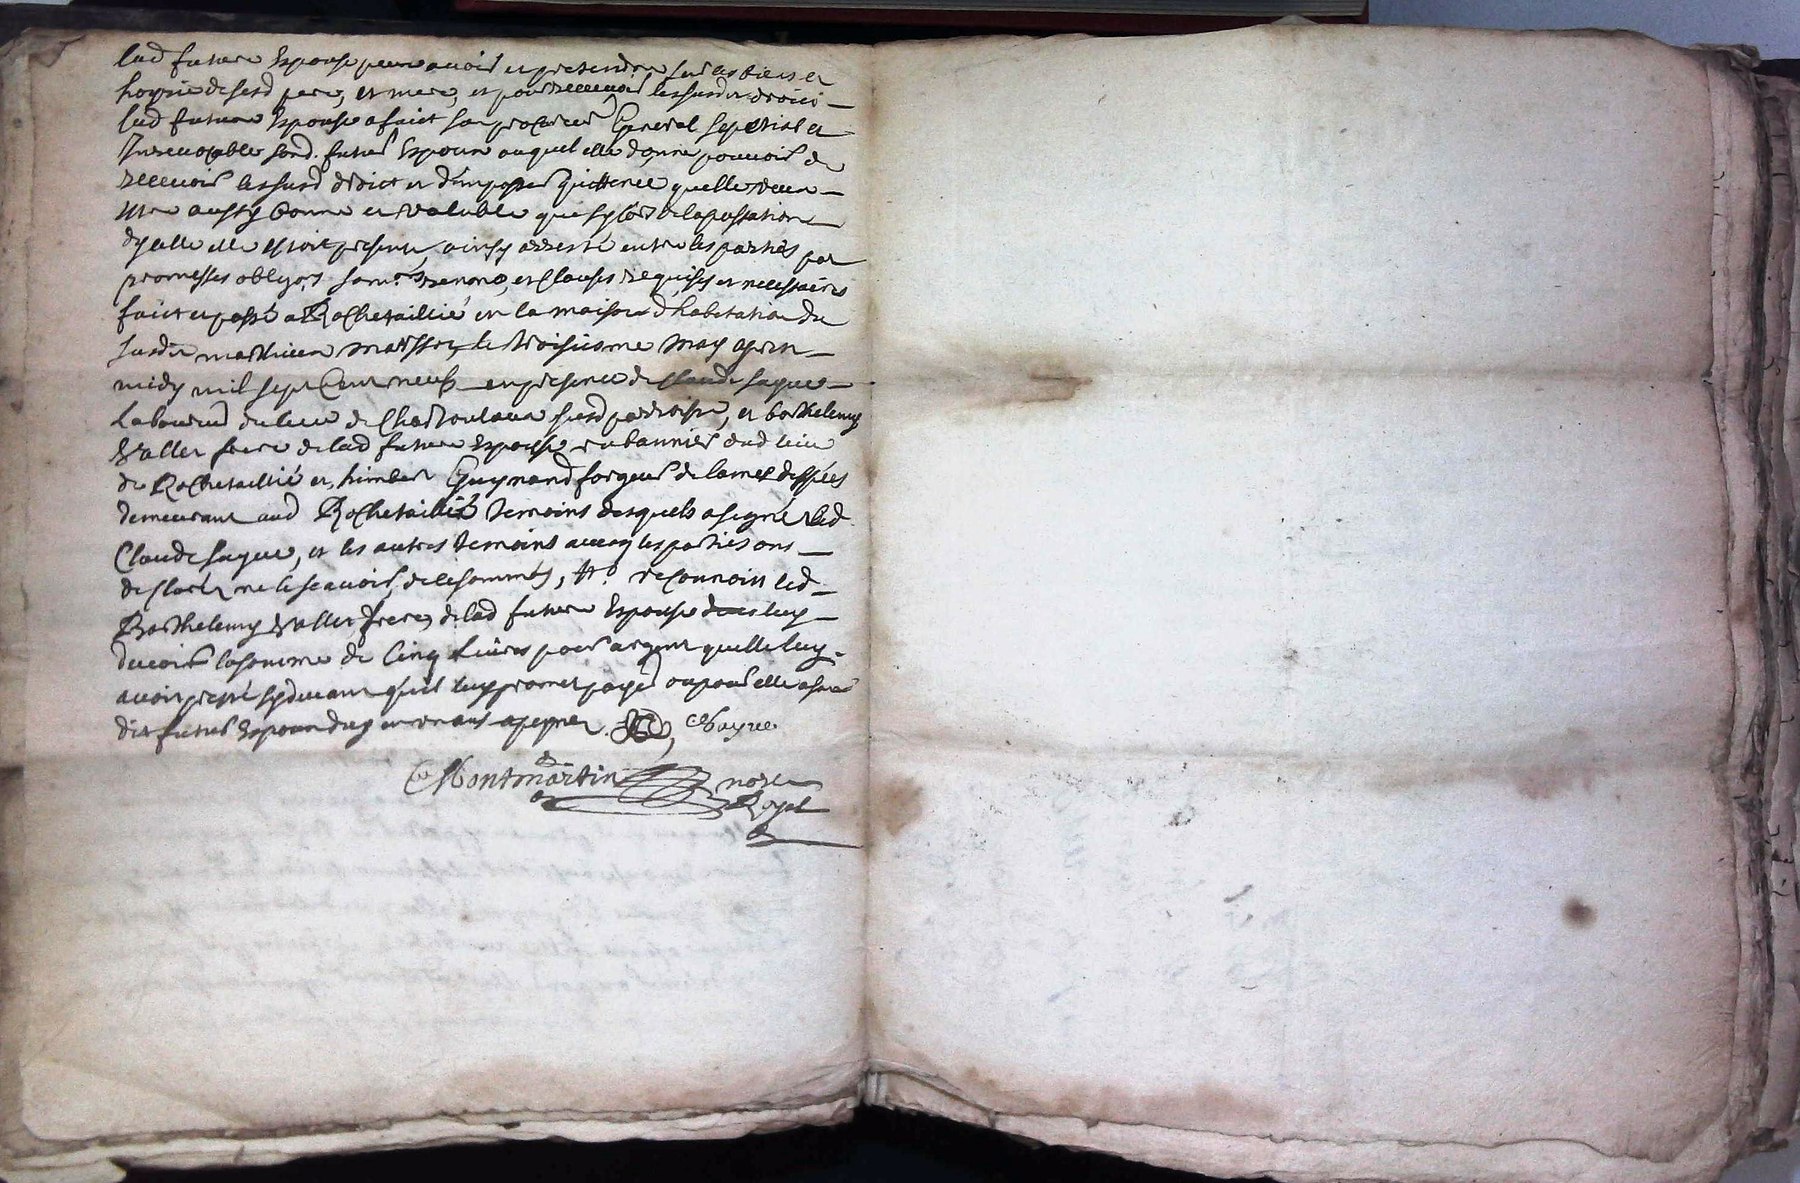 lad future Espouse peut avoir et pretendre sur les biens et
hoyrie de sesd pere, et mere, et pour recevoir lessusd droict
lad future Espouse a faict son procureur General Special et
Irrevocable sond. futur Espoux auquel elle donne pouvoir de
recevoir lessusd droict et d'en passer quittence quelle veut
estre aussy bonne et valuble que sy lors de la passation
dycelle elle estoit presente, ainsy arresté entre les parties par
promesses obligons renono, et Clauses requises et necessaires
faict et passé a Rochetaillié en la maison d'habitation du
susdit mathieu le troisiesme May apres
midy mil sept Cent neuf en presence de Claude fayue
Laboureur du lieu de susd parroisse, et barthelemy
Vallet frere de lad future Espouse rubannier dud lieu
de Rochetaillié et, himbert Guynand forgeur de lames despées
demeurant aud Rochetaillié temoins desquels a signé led
Claude fayue, et les autres temoins avecq les parties ont
declaré ne le scavoir, de ce sommés, reconnoit led
Barthelemy Vallet frere de lad future Espouse luy
devoir la somme de Cinq Livres pour argent quelle luy
avoit presté sydevant qu'il luy promet payer ou pour elle a son
dit futur Espoux
Montmartin nore
Royal